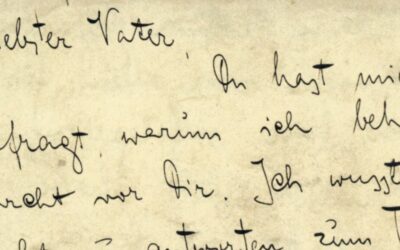 ebster Vater,
Du hast mi
fragt, warum ich beh
rcht vor Dir. Ich wusst
antworten, zum